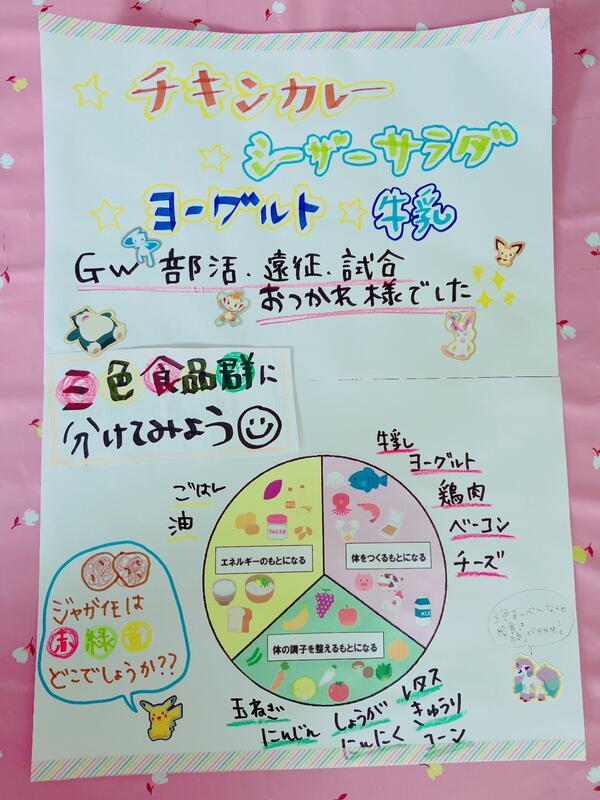 ☆ チキンカレー
☆ シーザーサラダ
☆ ヨーグルト ☆ 牛乳
GW 部活、遠征、試合
おつかれ様でした
三色食品群に
分けてみよう
ごはん
油
牛乳
ヨーグルト
鶏肉
ベーコン
チーズ
エネルギーのもとになる
体をつくるもとになる
体の調子を整えるもとになる
SUGAR
MILK
ジャガイモは
赤 緑 黄
どこでしょうか??
玉ねぎ
にんじん
しょうが
にんにく
レタス
きゅうり
コーン